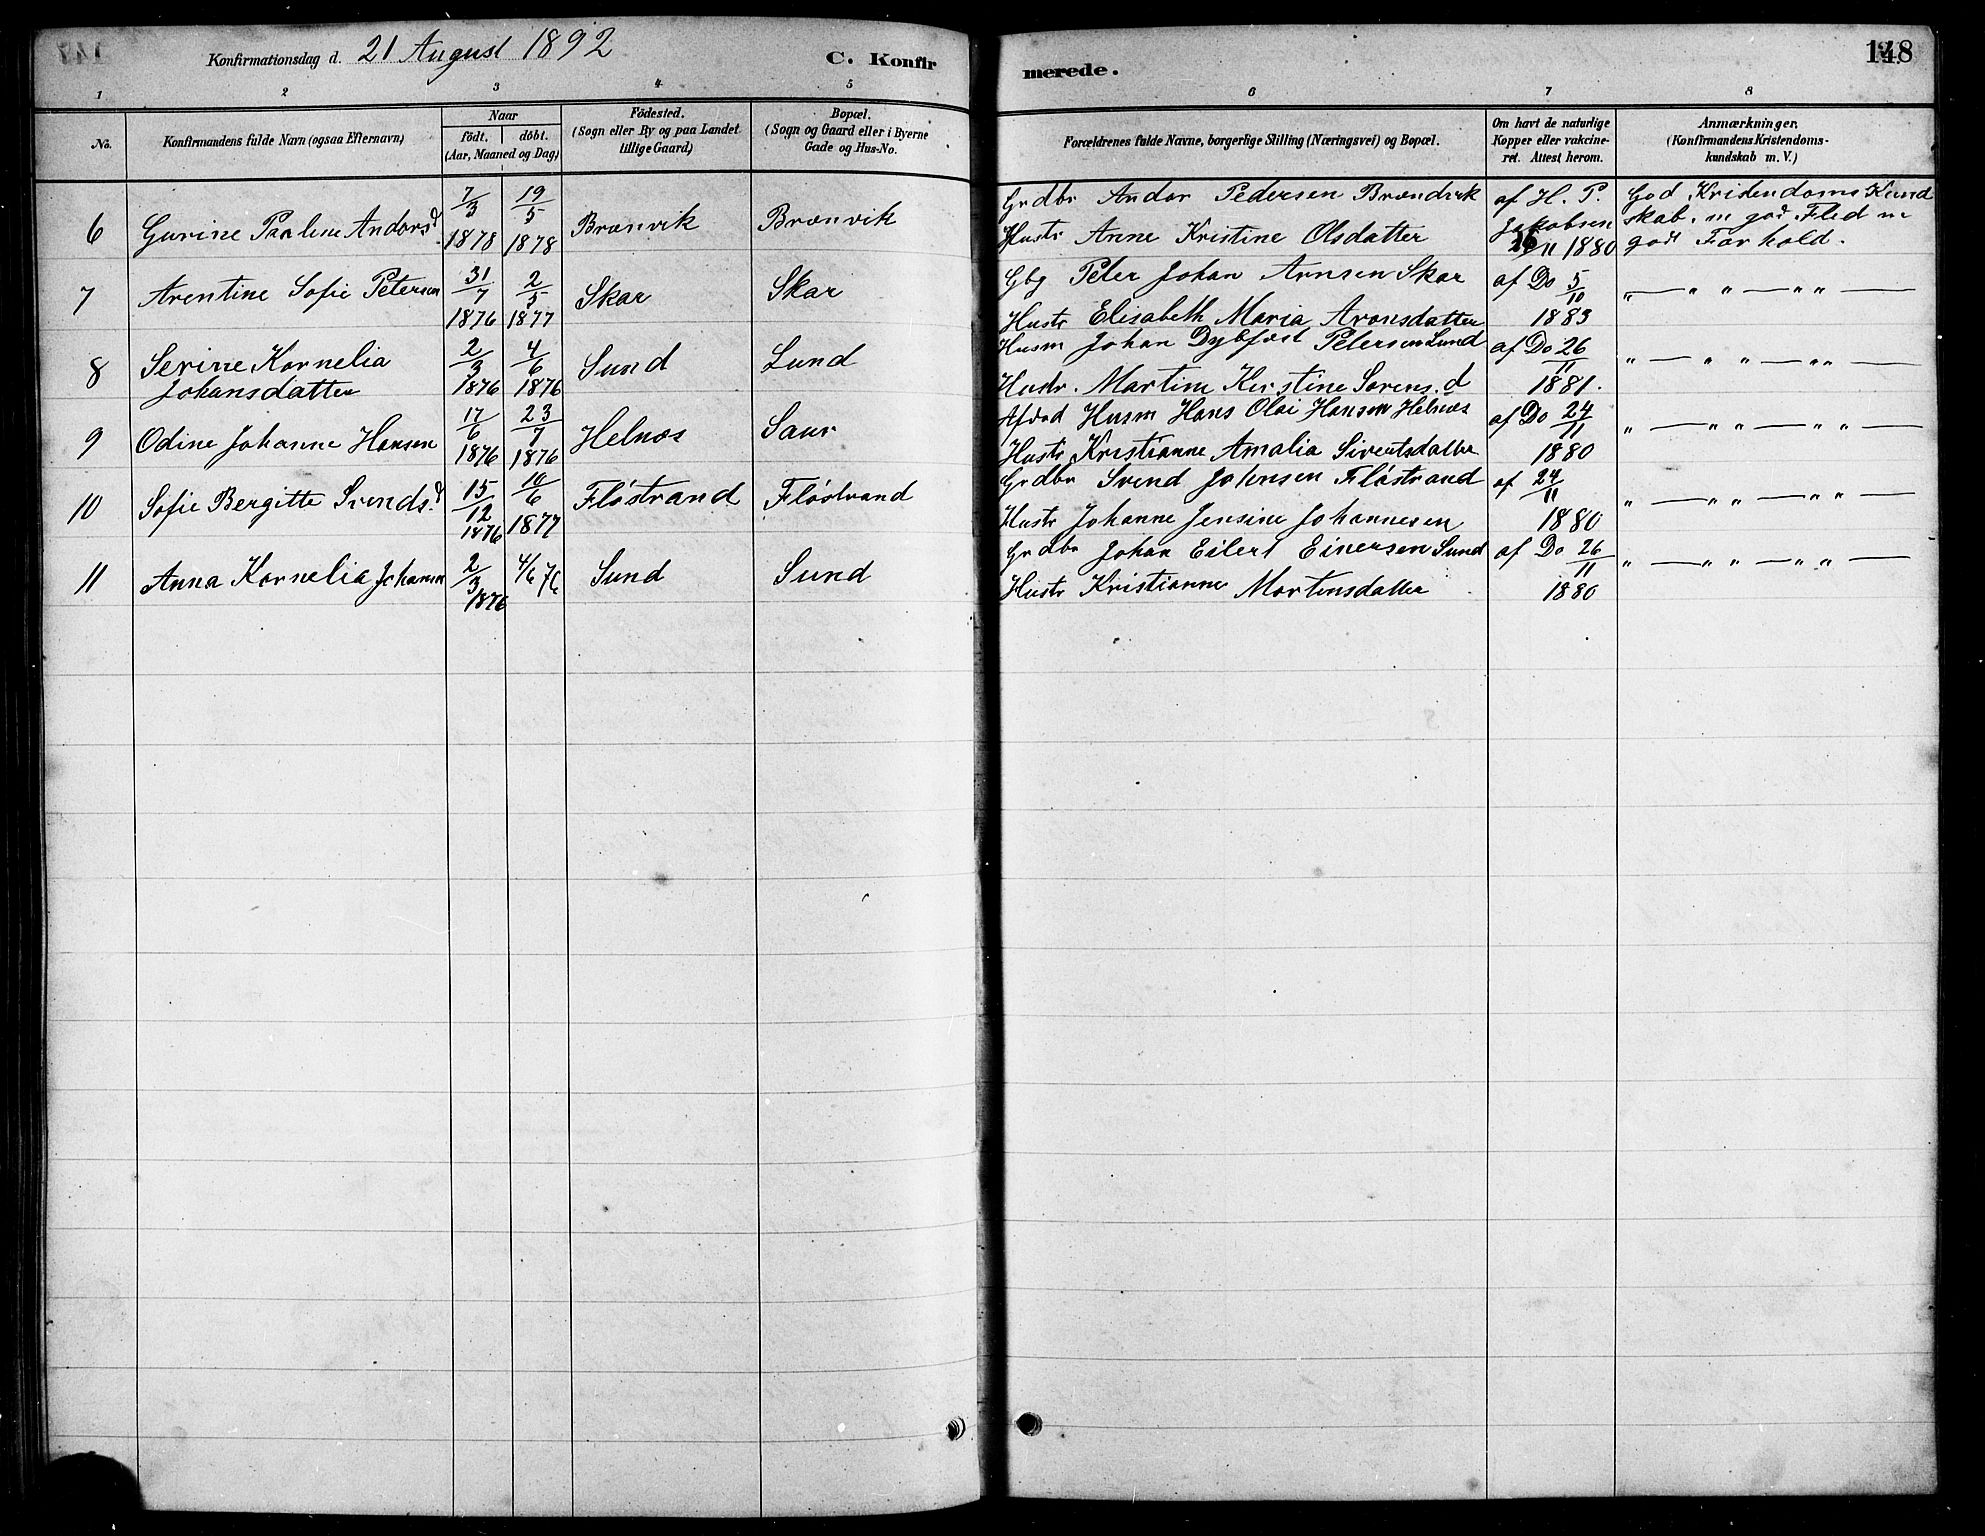 Konfirmationsdag d. 21 August 1892
C. Konfir
merede.
148
1 2 3 4 5 6 7 8
No.
Konfirmandens fulde Navn (ogsaa Efternavn)
Naar
födt. döbt.
(Aar, Maaned og Dag)
Födested.
(Sogn eller By og paa Landet
tillige Gaard)
Bopæl.
(Sogn og Gaard eller i Byerne
Gade og Hus-No.
Forældrenes fulde Navne, borgerlige Stilling (Næringsvei) og Bopæl.
Om havt de naturlige
Kopper eller vakcine-
ret. Attest herom.
Anmærkninger,
(Konfirmandens Kristendoms-
kundskab m. V.)
6 Gurine Paaline Andorsd. 7/3 1878 19/5 1878 Brænvik Brænvik
Grdbr Andor Pedersen Brændvik
Hustr Anne Kristine Olsdatter
af H. P.
Jakobsen
11 1880
God Kristendoms Kund
skab. m god Flid m
god Forhold.
7 Arentine Sofie Petersen 31/7 1876 2/5 1877 Skar Skar
Gbg Peter Johan Arnsen Skar
Hustr Elisabeth Maria Aronsdatter
af Do 5/10
1883
" — " " — " " —
8 Serine Kornelia
Johansdatter
2/3 1876 4/6 1876 Sund Lund
Husm Johan Dybfæst Petersen Lund
Hustr. Martine Kerstine Sorens.d
af Do 26/11
1881.
" — " " — " " —
9 Odine Johanne Hansen 17/6 1876 23/7 1876 Helnæs Saur
Afdød Husm Hans Olai Hansen Helnæs
Hustr Kristianne Amalia Siverstdatter
af Do 24/11
1880
" — " " — " " —
10 Sofie Bergitte Svends.d 15/12 1876 10/6 1877 Flöstrand Flöstrand
Grdbr Svend Johnsen Flöstrand
Hustr Johanne Jensine Johannesen
af 24/11
1880
" — " " — " " —
11 Anna Kornelia Johansn 2/3 1876 4/6 76 Sund Sund
Grdbr Johan Eilert Einersen Sund
Hustr Kristianne Mortensdatter
af Do 26/11
1880
" — " " — " " —